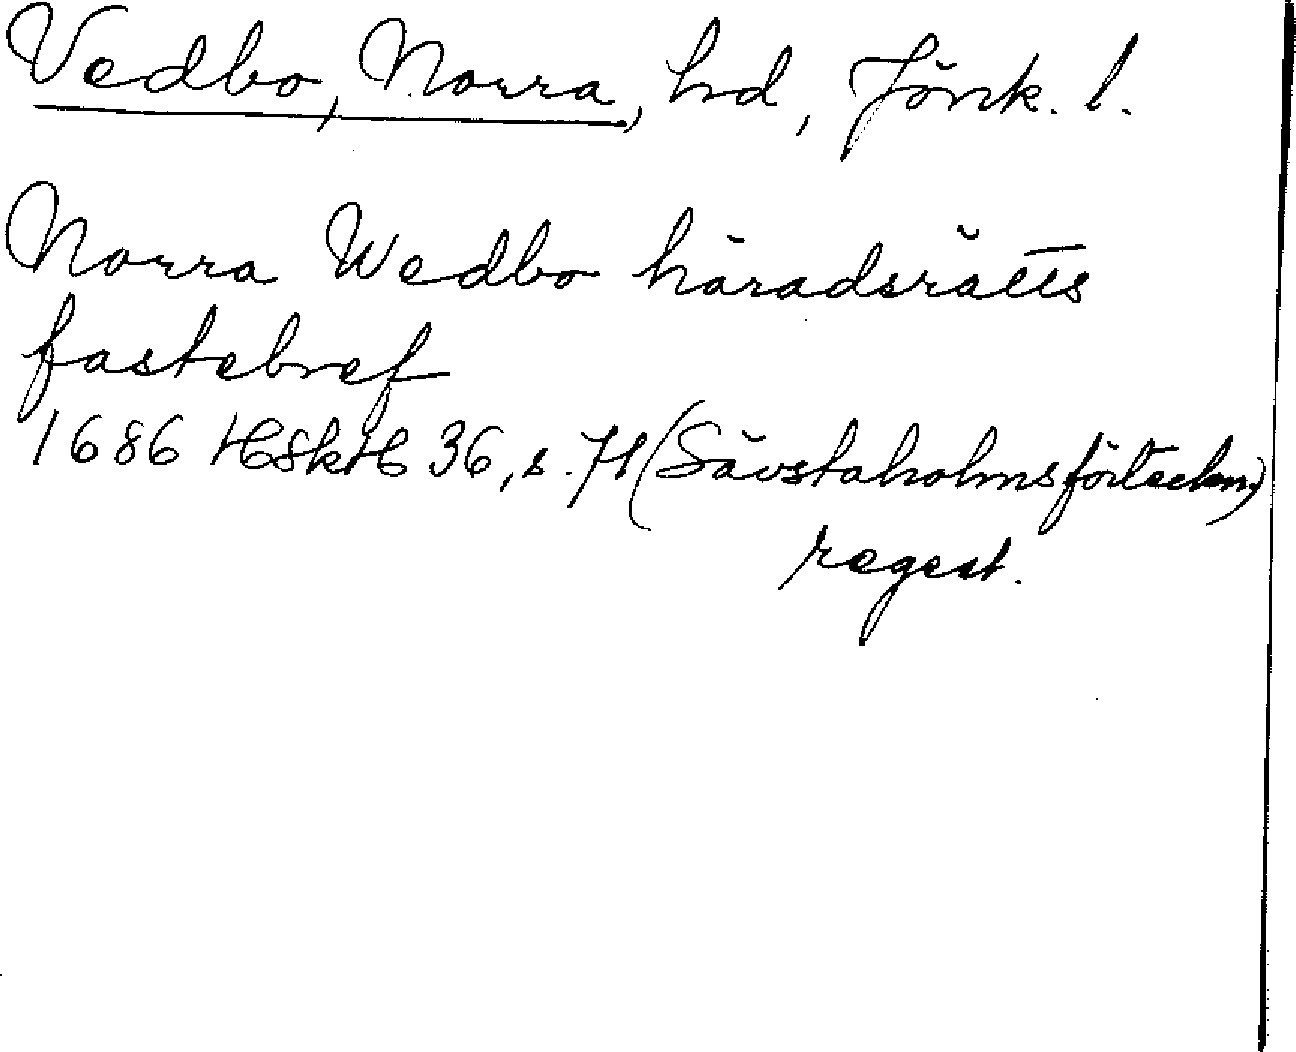 Vedbo, Norra, hd, Jönk. l.
Norra Wedbo häradsrätts
fastebref
1686 HSkH 36, s. 71 (Sävstaholmsförteckn.)
regest.